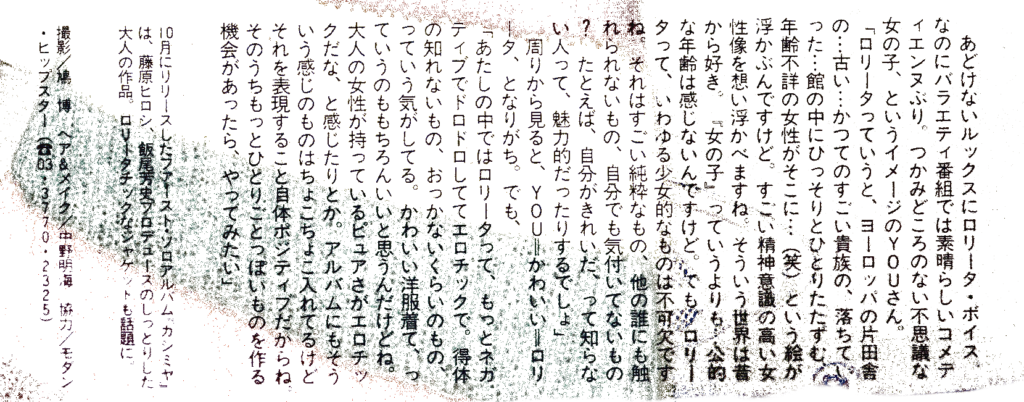 あどけないルックスにロリータ・ボイス。
なのにバラエティ番組では素晴らしいコメデ
ィエンヌぶり。つかみどころのない不思議な
女の子、というイメージのYOUさん。
「ロリータっていうと、ヨーロッパの片田舎
の…古い…かつてのすごい貴族の、落ちてい
った…館の中にひっそりとひとりたたずむ、
年齢不詳の女性がそこに…（笑）という絵が
浮かぶんですけど。すごい精神意識の高い女
性像を想い浮かべますね。そういう世界は昔
から好き。『女の子』っていうよりも…公的
な年齢は感じないんですけど。でも、ロリー
タって、いわゆる少女的なものは不可欠です
ね。それはすごい純粋なもの、他の誰にも触
れられないもの、自分でも気付いてないもの
？　たとえば、自分がきれいだ、って知らな
い人って、魅力的だったりするでしょ」
周りから見ると、YOU＝かわいい＝ロリ
ータ、となりがち。でも、
「あたしの中ではロリータって、もっとネガ
ティブでドロドロしててエロチックで。得体
の知れないもの、おっかないくらいのもの、
っていう気がしてる。かわいい洋服着て、っ
ていうのももちろんいいと思うんだけどね。
大人の女性が持っているピュアさがエロチッ
クだな、と感じたりとか。アルバムにもそう
いう感じのものはちょこちょこ入れてるけど
それを表現すること自体ポジティブだからね
そのうちもっとひとりごとっぽいものを作る
機会があったら、やってみたい」
10月にリリースしたファースト・ソロアルバム『カシミヤ』
は、藤原ヒロシ、飯尾芳史プロデュースのしっとりした
大人の作品。ロリータチックなジャケットも話題に。
撮影／鳩　博　ヘア&メイク／中野明海　協力／モダン
・ヒップスター（☎03・3770・2325）